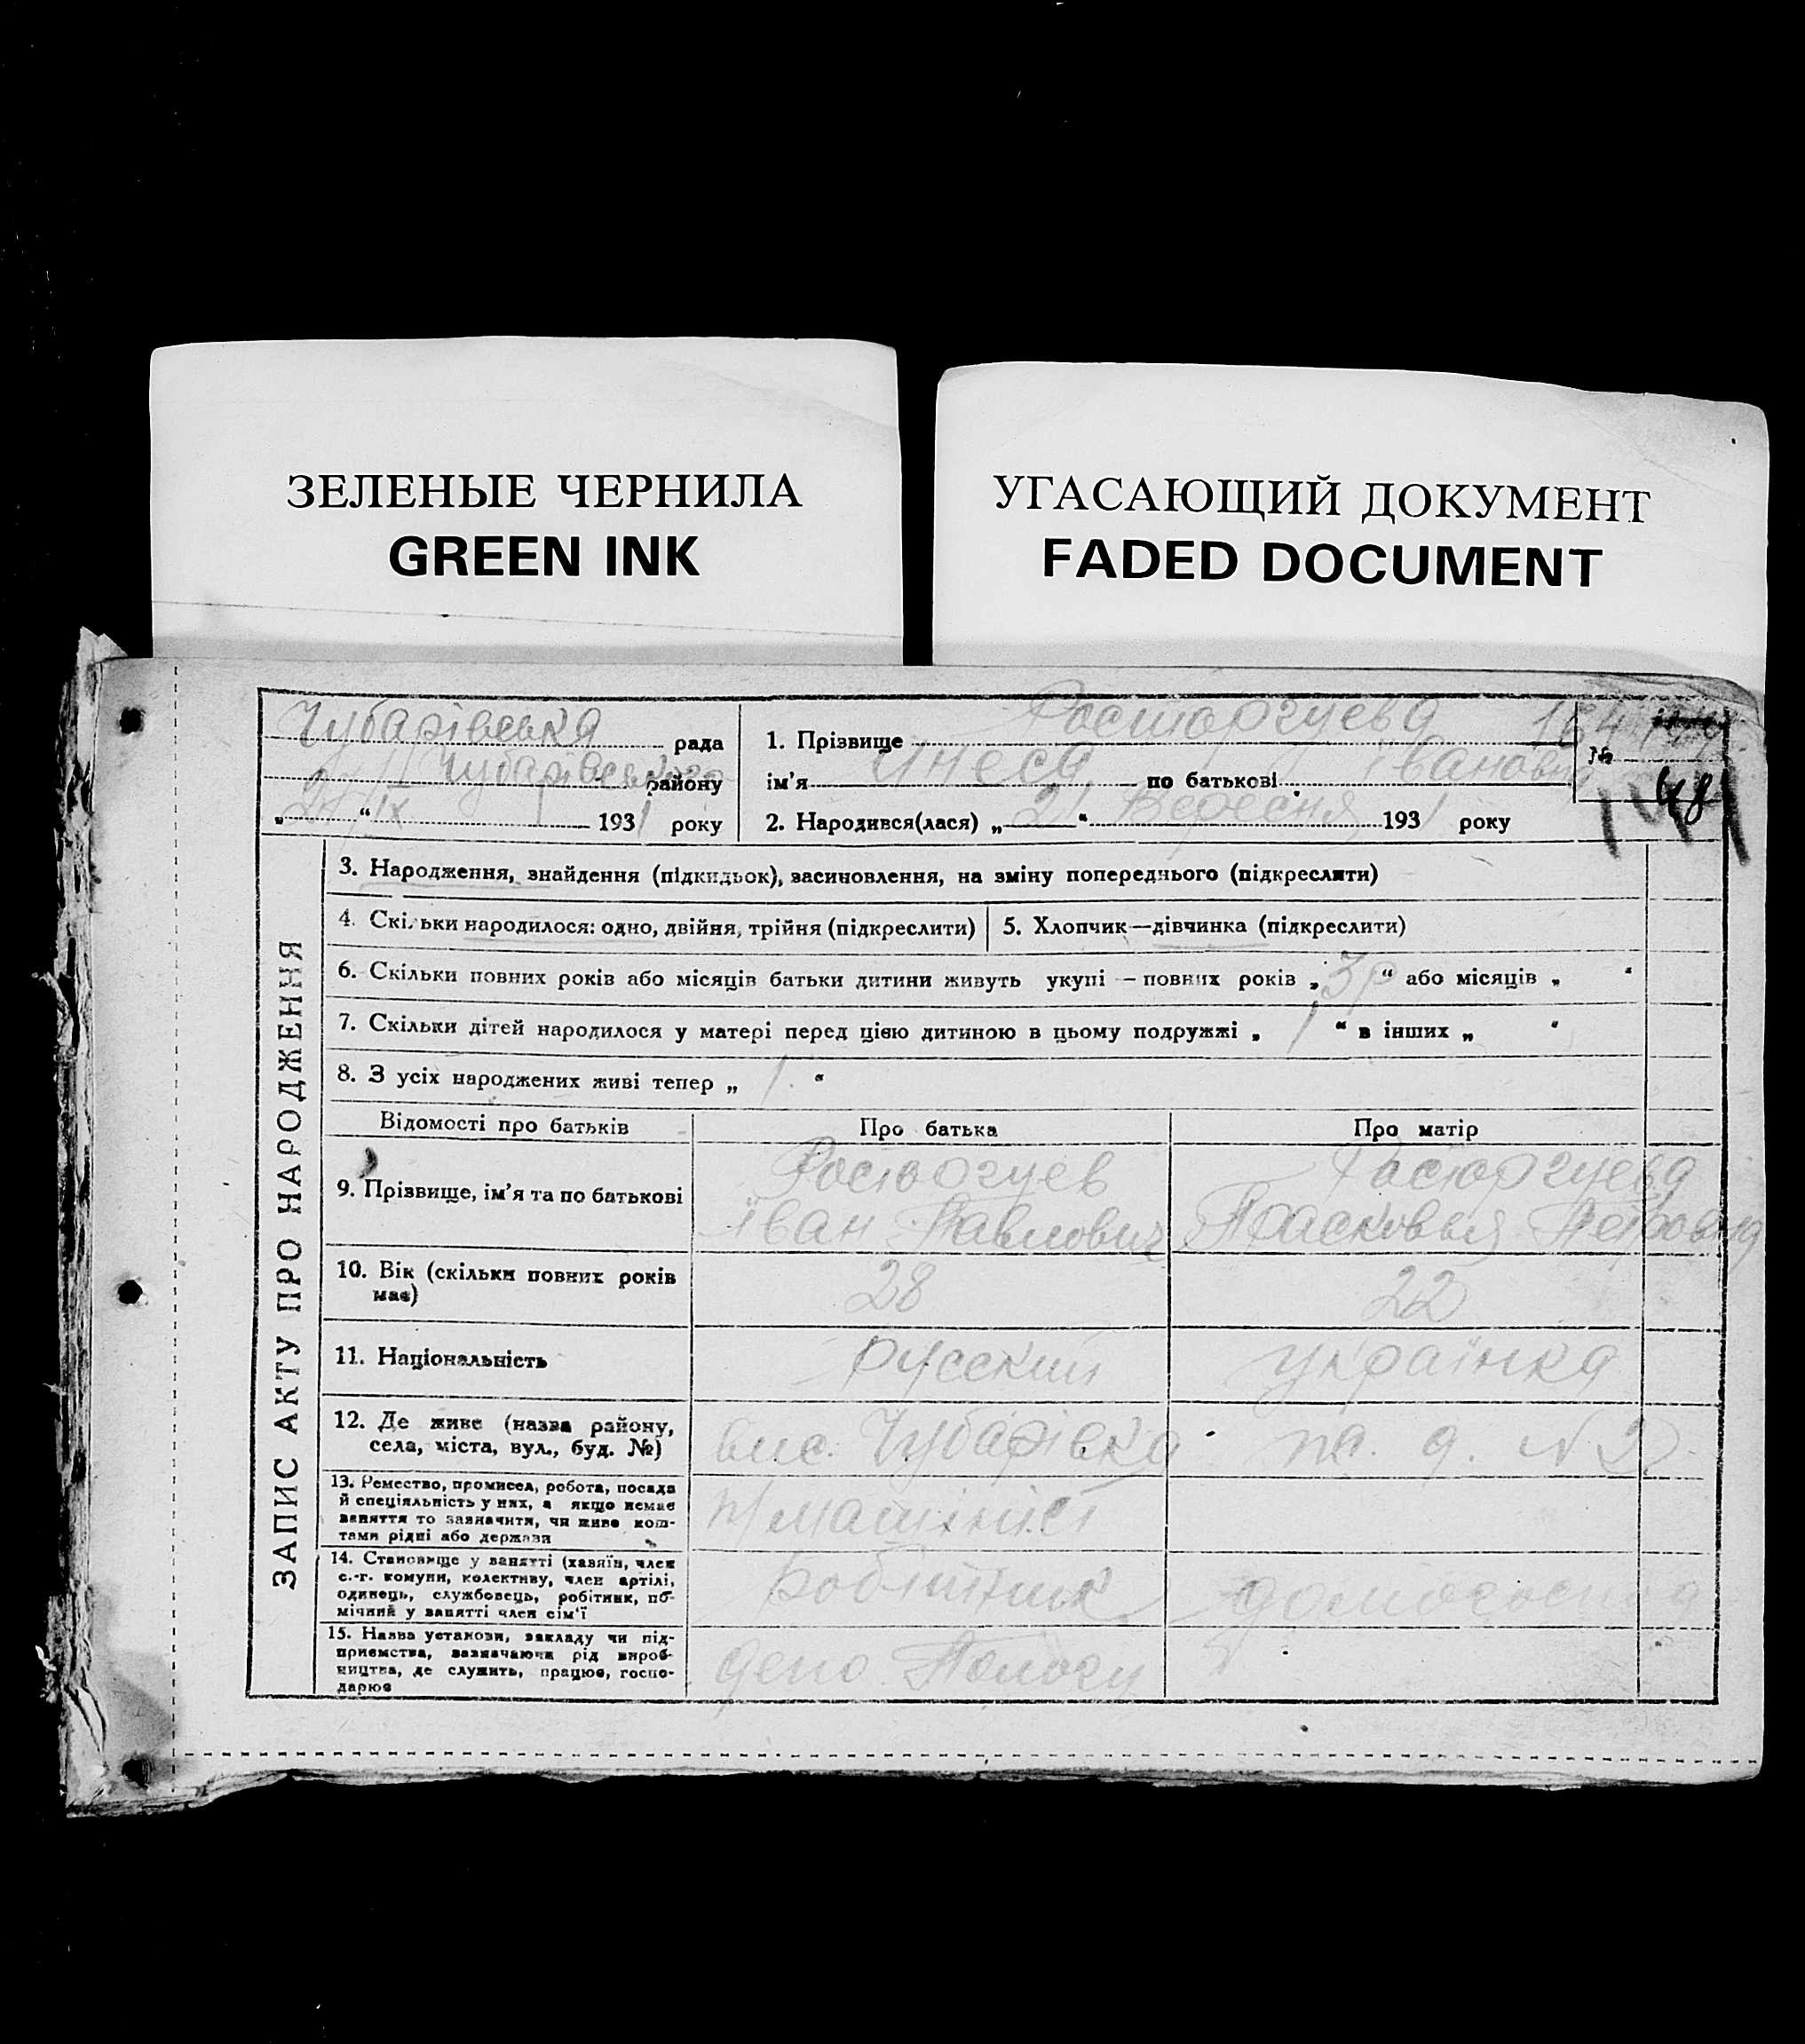 ЗЕЛЕНЫЕ ЧЕРНИЛА
GREEN INK
УГАСАЮЩИЙ ДОКУМЕНТ
FADED DOCUMENT
Чубарівська рада
Чубарівського району
„ “ IX 1931 року
1. Прізвище Росторгуева
ім’я Инеса по батькові Іванов
2. Народився(лася) „ 21 “ Вересня 1931 року
164
№
48
ЗАПИС АКТУ ПРО НАРОДЖЕННЯ
3. Народження, знайдення (підкидьок), засиновлення, на зміну попереднього (підкреслити)
4. Скільки народилося: одно, двійня, трійня (підкреслити)
5. Хлопчик—дівчинка (підкреслити)
6. Скільки повних років або місяців батьки дитини живуть укупі — повних років „ 3р “ або місяців „ “
7. Скільки дітей народилося у матері перед цією дитиною в цьому подружжі „ 1 “ в інших „ “
8. З усіх народжених живі тепер „ 1. “
Відомості про батьків
Про батька
Про матір
9. Прізвище, ім’я та по батькові
Росторгуев
Іван Павлович
Росторгуева
Прасковья Петровна
10. Вік (скільки повних років
має)
28
22
11. Національність
русский
українка
12. Де живе (назва району,
села, міста, вул., буд. №)
вис. Чубарівка
ж. д. N 2
13. Ремество, промисел, робота, посада
й спеціяльність у них, а якщо немає
заняття то зазначити, чи живе кош-
тами рідні або держави
п/машініст
14. Становище у занятті (хазяїн, член
с.-г. комуни, колективу, член артілі,
одинець, службовець, робітник, по-
мічний у занятті член сім’ї
Робітник
15. Назва установи, закладу чи під-
приємства, зазначаючи рід вироб-
ництва, де служить, працює, госпо-
дарює
депо Пологи